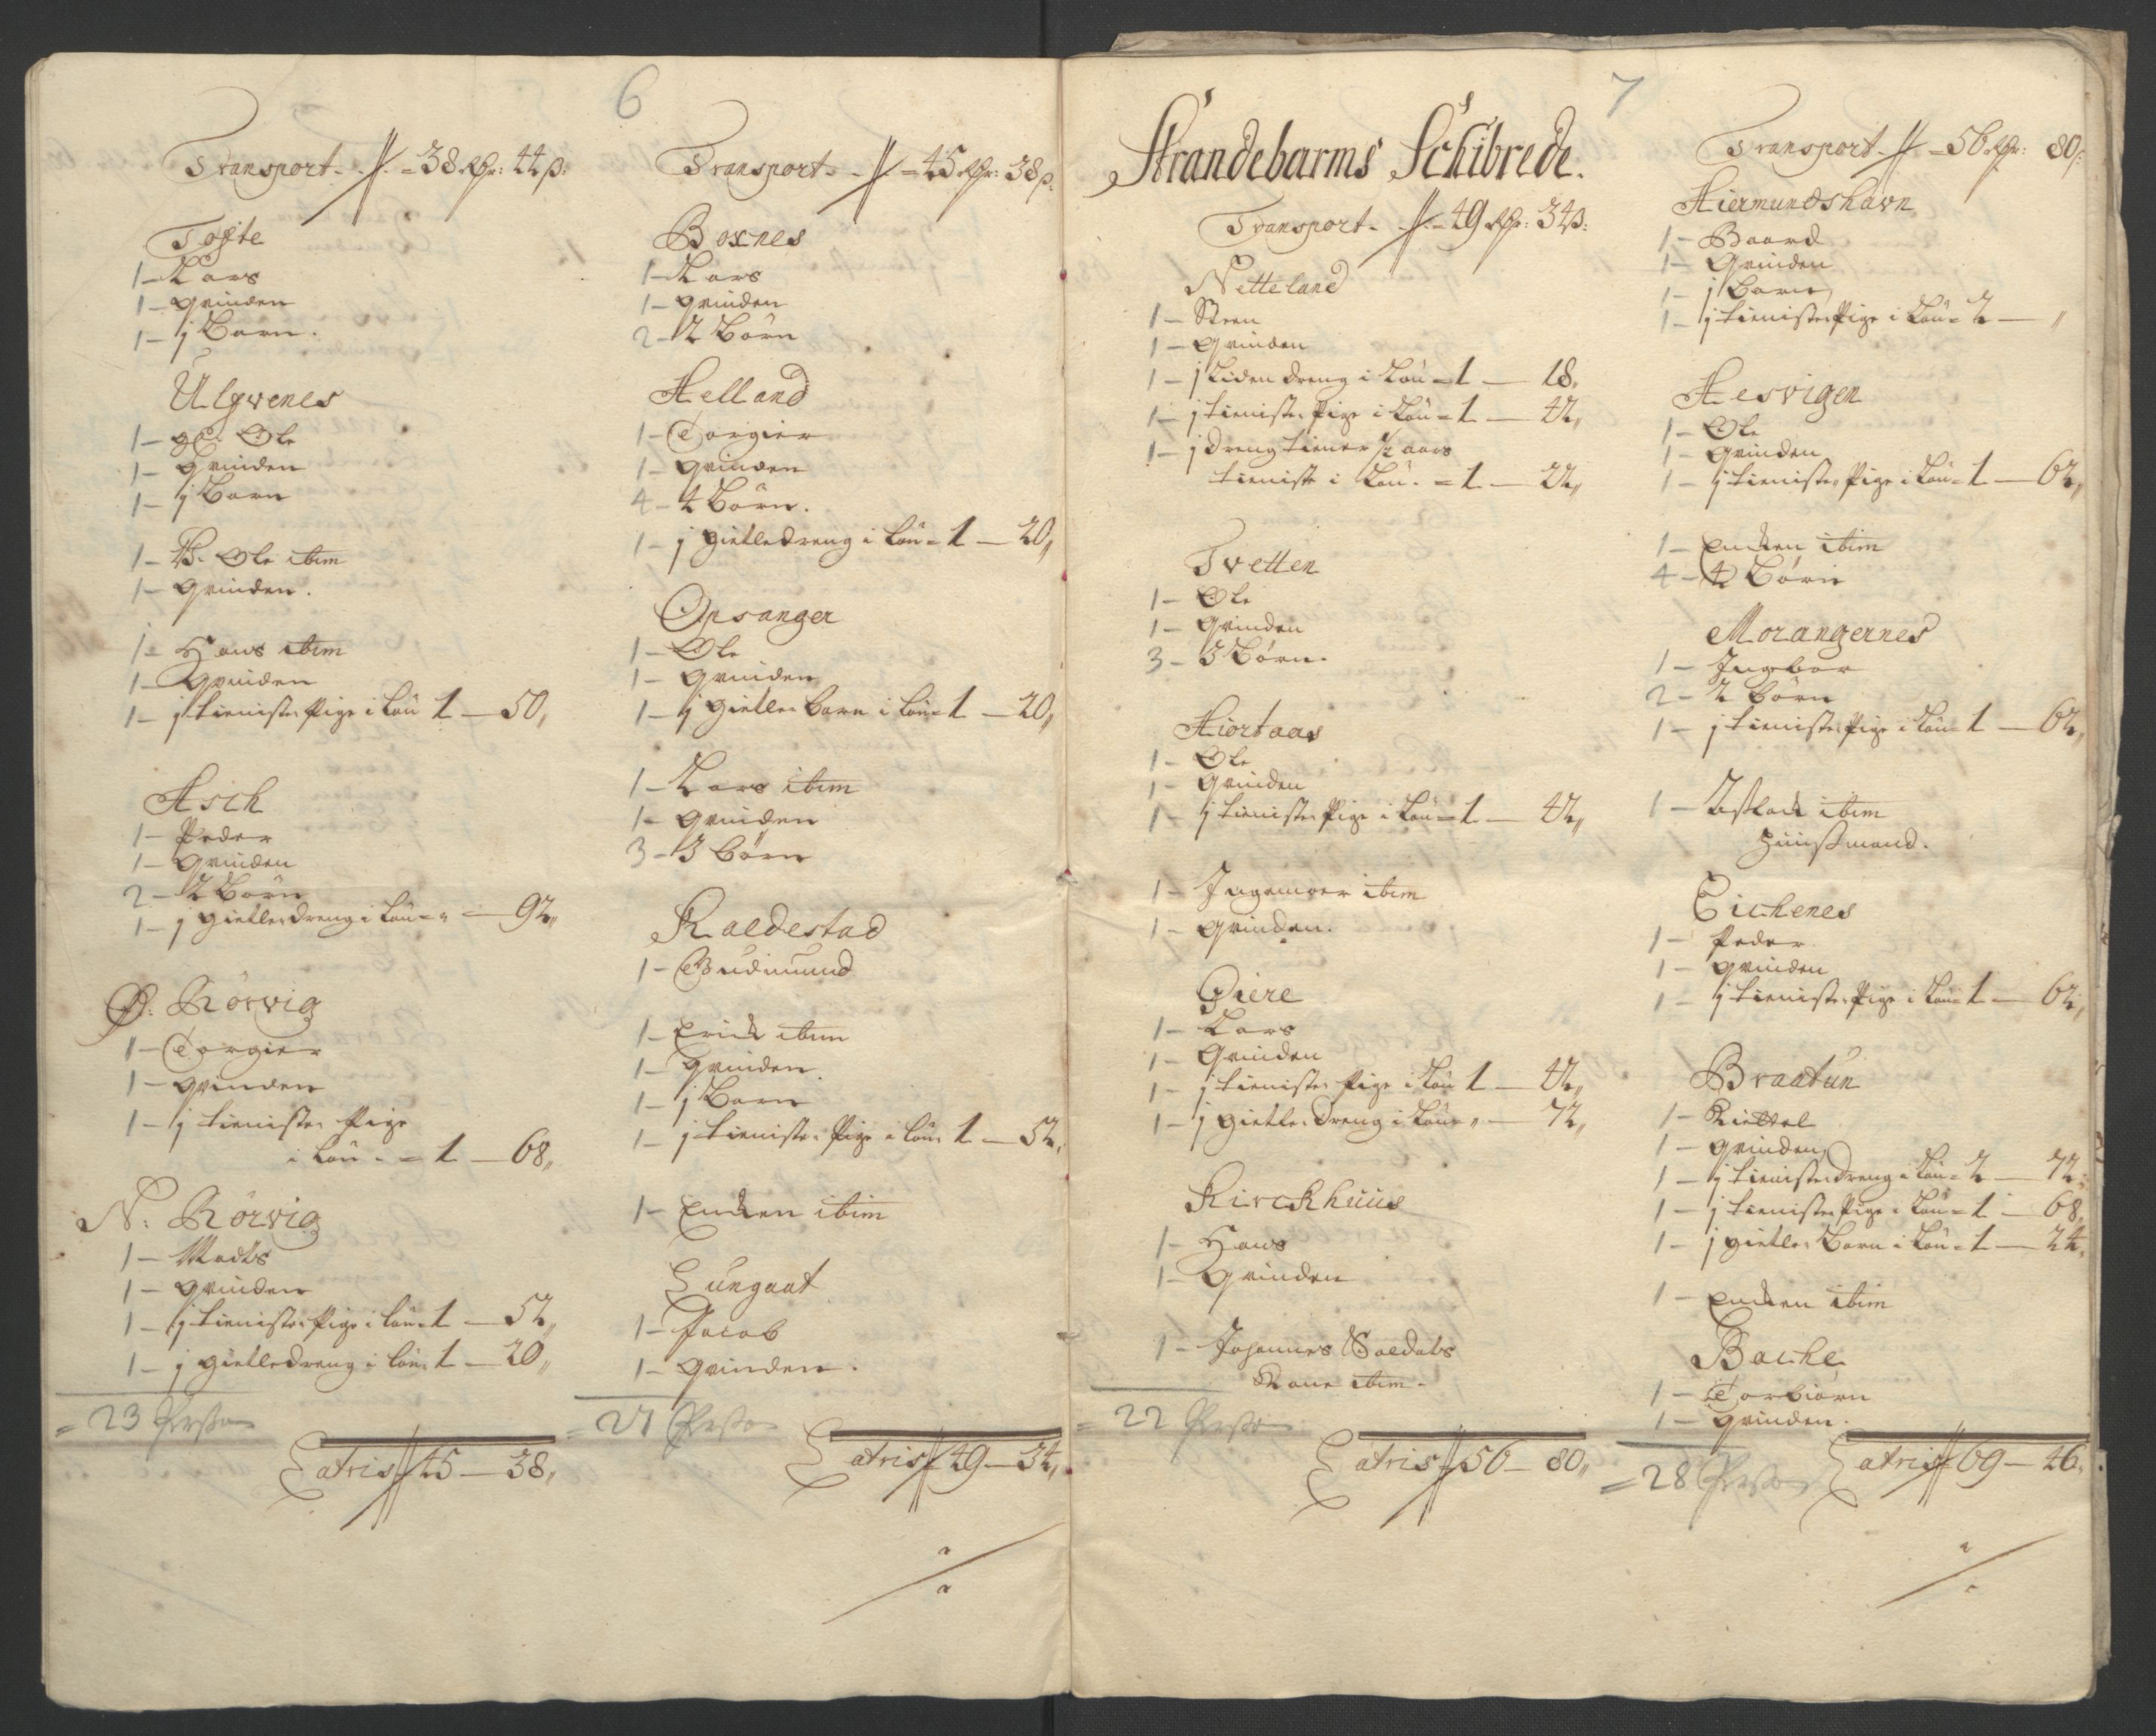 6
Transport - 38 Rdr: 44 ß:
Tofte
1 - Lars
1 - Qvinden
1 - j Barn.
Ulgvenes
1 - gl. Ole
1 - Qvinden
1 - j Barn
1 - B. Ole ibim
1 - Qvinden.
1 - Hans ibim
1 - Qvinden
1 - j tieniste Pige i Løn 1 - 50"
Asch
1 - Peder
1 - Qvinden
2 - 2 Børn
1 - j gietledreng i Løn - " - 92"
Ø: Rørvig
1 - Torgier
1 - Qvinden
1 - j tieniste Pige
i Løn - = 1 - 68"
N: Rørvig
1 - Madts
1 - Qvinden
1 - j tieniste Pige i Løn - 1 - 52"
1 - j gietledreng i Løn - 1 - 20"
= 23 Perso
Latris 45 - 38"
Transport - = 45 Rdr: 38 ß.
Boxnes
1 - Lars
1 - Qvinden
2 - 2 Børn
Helland
1 - Torgier
1 - Qvinden
4 - 4 Børn.
1 - j gietledreng i Løn - 1 - 20"
Opsanger
1 - Ole
1 - Qvinden
1 - j gietle Barn i Løn - 1 - 20"
1 - Lars ibim
1 - Qvinden
3 - 3 Børn
Raldestad
1 - Gudmund
1 - Erick ibim
1 - Qvinden
1 - j Barn
1 - j tieniste Pige i Løn 1 - 52"
1 - Encken ibim
Lungaat
1 - Jacob
1 - Qvinden.
= 27 Perso
Latris 49 - 34"
7
Strandebarms Schibrede.
Transport - = 49 Rdr: 34 ß:
Netteland
1 - Steen
1 - Qvinden
1 - j Liden dreng i Løn = 1 - 18"
1 - j tieniste Pige i Løn = 1 - 42"
1 - j dreng tiener 1/2 aars
tieniste i Løn. = 1 - 22"
Tvetten
1 - Ole
1 - Qvinden
3 - 3 Børn.
Hiortaas
1 - Ole
1 - Qvinden
1 - j tieniste Pige i Løn = 1 - 42"
1 - Ingemoer ibim
1 - Qvinden.
Giere
1 - Lars
1 - Qvinden
1 - j tieniste Pige i Løn 1 - 42"
1 - j gietle dreng i Løn - " - 72"
Kirckhuus
1 - Hans
1 - Qvinden
1 - Johannes Soldats
Kone ibim.
= 22 Perso
Latris 56 - 80"
Transport - = 56 Rdr: 80 ß:
Hiermundshavn
1 - Baard
1 - Qvinden
1 - j Barn
1 - j tieniste Pige i Løn = 2 - "
Hesvigen
1 - Ole
1 - Qvinden
1 - j tieniste Pige i Løn = 1 - 62"
1 - Encken ibim
4 - 4 Børn
Morangernes
1 - Ingbor
2 - 2 Børn
1 - j tieniste Pige i Løn = 1 - 62"
1 - Aslack ibim
Huusmand.
Eichenes
1 - Peder
1 - Qvinden
1 - j tieniste Pige i Løn = 1 - 62"
Braatun
1 - Kiettel
1 - Qvinden
1 - j tieniste dreng i Løn = 2 - 72"
1 - j tieniste Pige i Løn = 1 - 68"
1 - j gietle Barn i Løn = 1 - 24"
1 - Encken ibim
Bache
1 - Torbiørn
1 - Qvinden.
= 28 Perso
Latris 69 - 46"